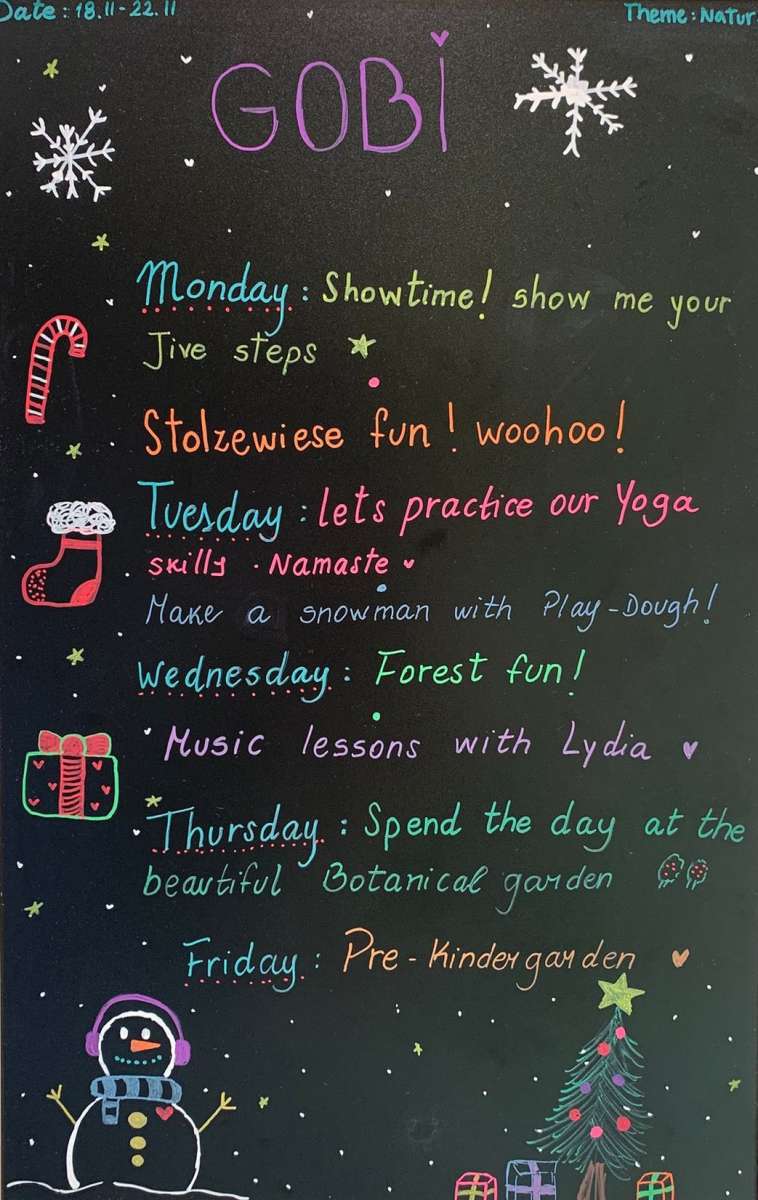 Date: 18.11-22.11
Theme: Natur
GOBI
Monday: Showtime! show me your
Jive steps
Stolzewiese fun! woohoo!
Tuesday: lets practice our Yoga
skills. Namaste
Make a snowman with Play-Dough!
Wednesday: Forest fun!
Music lessons with Lydia
Thursday: Spend the day at the
beautiful Botanical garden
Friday: Pre-Kindergarden